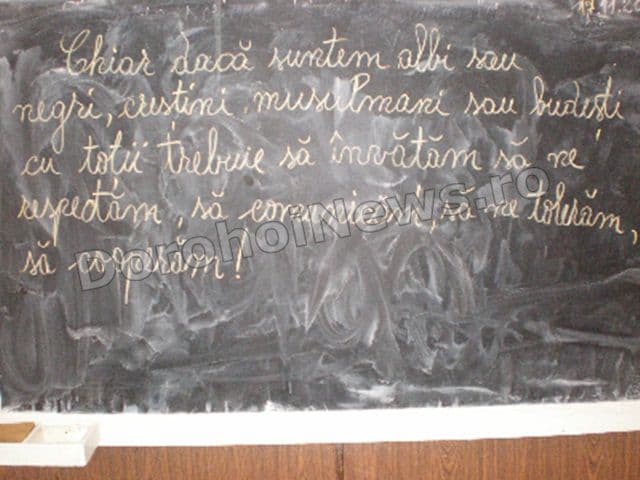 17.11.20
Chiar dacă suntem albi sau
negri, creștini, musulmani sau budești
cu toții trebuie să învățăm să ne
respectăm, să comunicăm, să ne tolerăm,
să cooperăm!
DorohoiNews.ro